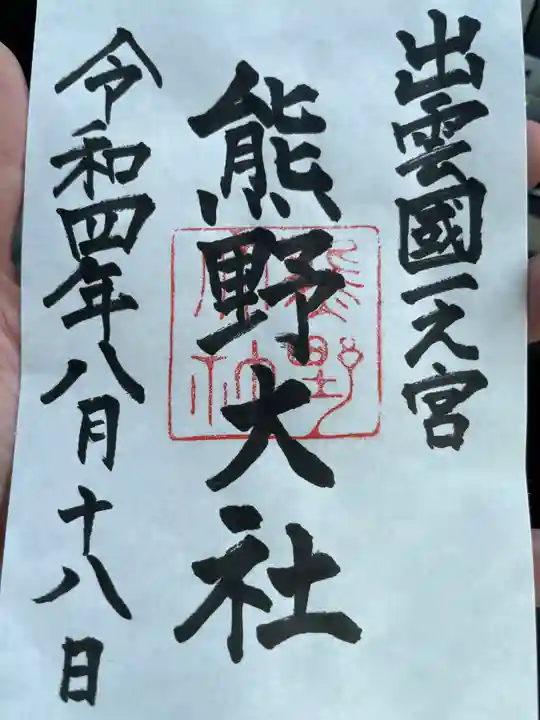 出雲國一之宮
熊野大社
令和四年八月十八日
熊野
大社